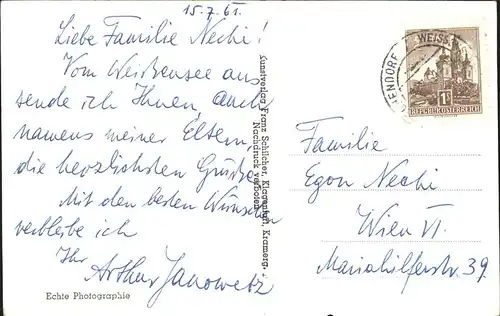 15.7.61.
Liebe Familie Nechi!
Vom Weißensee aus
sende ich Ihnen, auch
namens meiner Eltern,
die herzlichsten Grüße.
Mit den besten Wünschen
verbleibe ich
Ihr
Arthur Janowetz
Echte Photographie
Kunstverlag Franz Schilcher, Klagenfurt, Kramerg.
Nachdruck verboten
WEISS
ENDORF
1S
REPUBLIK ÖSTERREICH
Familie
Egon Nechi
Wien VI.
Mariahilferstr. 39